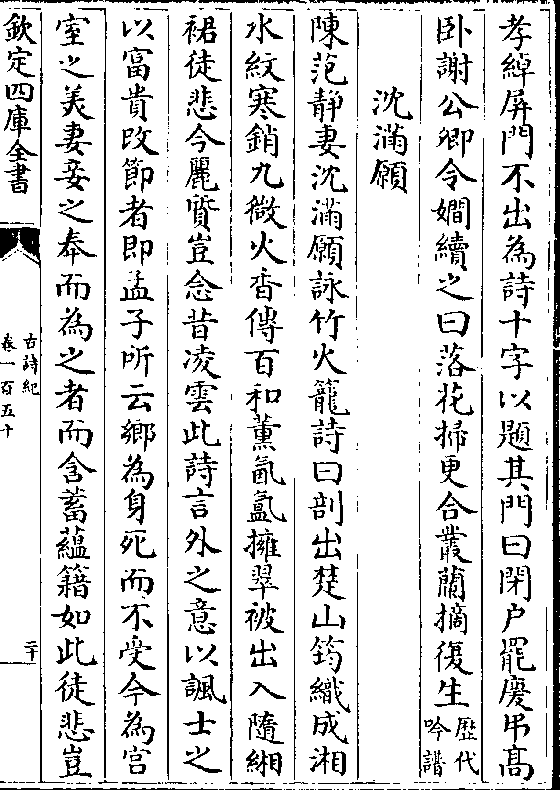 孝綽屏門不出為詩十字以題其門曰閉户罷慶弔髙
卧謝公卿令嫺續之曰落花掃更合叢蘭摘復生歴代吟譜
沈滿願
陳范静妻沈滿願詠竹火籠詩曰剖出楚山筠織成湘
水紋寒銷九微火香傳百和薫氤氲擁翠被出入隨緗
裙徒悲今麗質豈念昔凌雲此詩言外之意以諷士之
以富貴改節者即孟子所云鄉為身死而不受今為宫
室之美妻妾之奉而為之者而含蓄蘊籍如此徒悲豈
欽定四庫全書
古詩紀
卷一百五十
二十